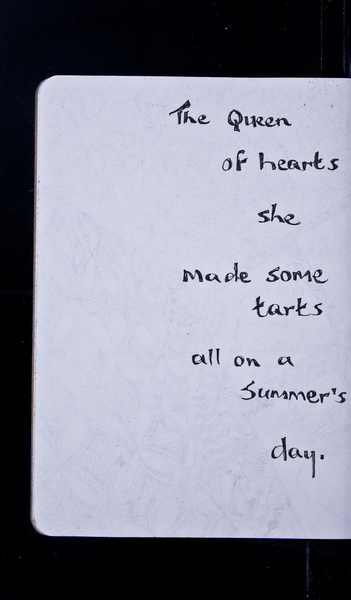 The Queen
of hearts
she
made some
tarts
all on a
Summer's
day.